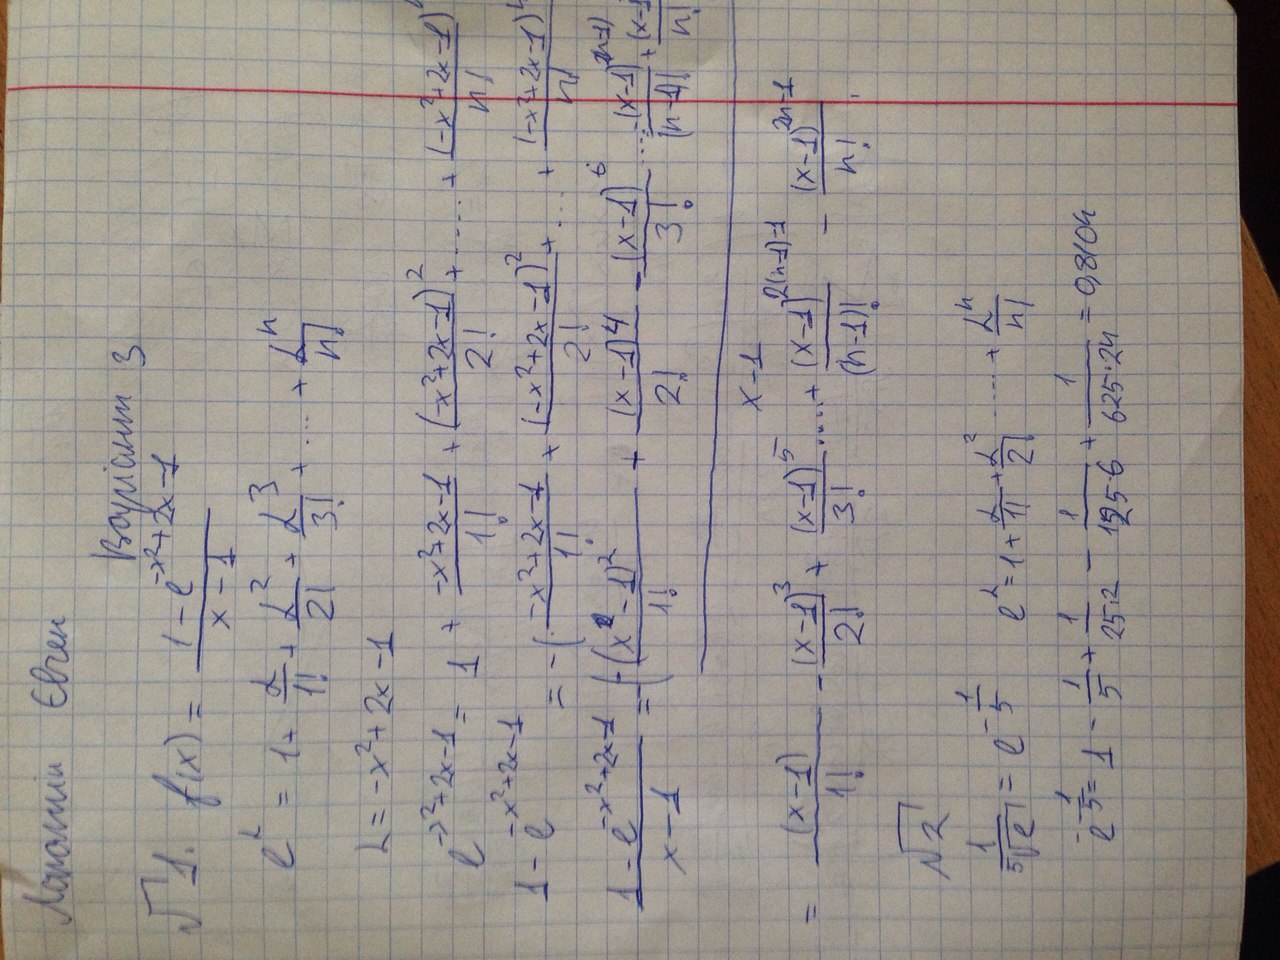 Євген
Варіант 3
√1. f(x) = (1 - e^(-x²+2x-1))/(x-1)
e^α = 1 + α/1! + α²/2! + α³/3! + .... + αⁿ/n!
α = -x²+2x-1
e^(-x²+2x-1) = 1 + (-x²+2x-1)/1! + (-x²+2x-1)²/2! + ..... + (-x²+2x-1)ⁿ/n!
1 - e^(-x²+2x-1)
= -( (-x²+2x-1)/1! + (-x²+2x-1)²/2! + .... + (-x²+2x-1)ⁿ/n!
(1 - e^(-x²+2x-1))/(x-1) = (-(x-1)²/1! + (x-1)⁴/2! - (x-1)⁶/3! .... -(x-1)^(2(n-1))/(n-1)! + (x-1)/n!
x-1
= (x-1)/1! - (x-1)³/2! + (x-1)⁵/3! .... + (x-1)^(2(n-1)-1)/(n-1)! - (x-1)^(2n-1)/n!
√2
1/⁵√e = e^(-1/5) e^α = 1 + α/1! + α²/2! ..... + αⁿ/n!
e^(-1/5) = 1 - 1/5 + 1/(25·2) - 1/(125·6) + 1/(625·24) = 0,8104